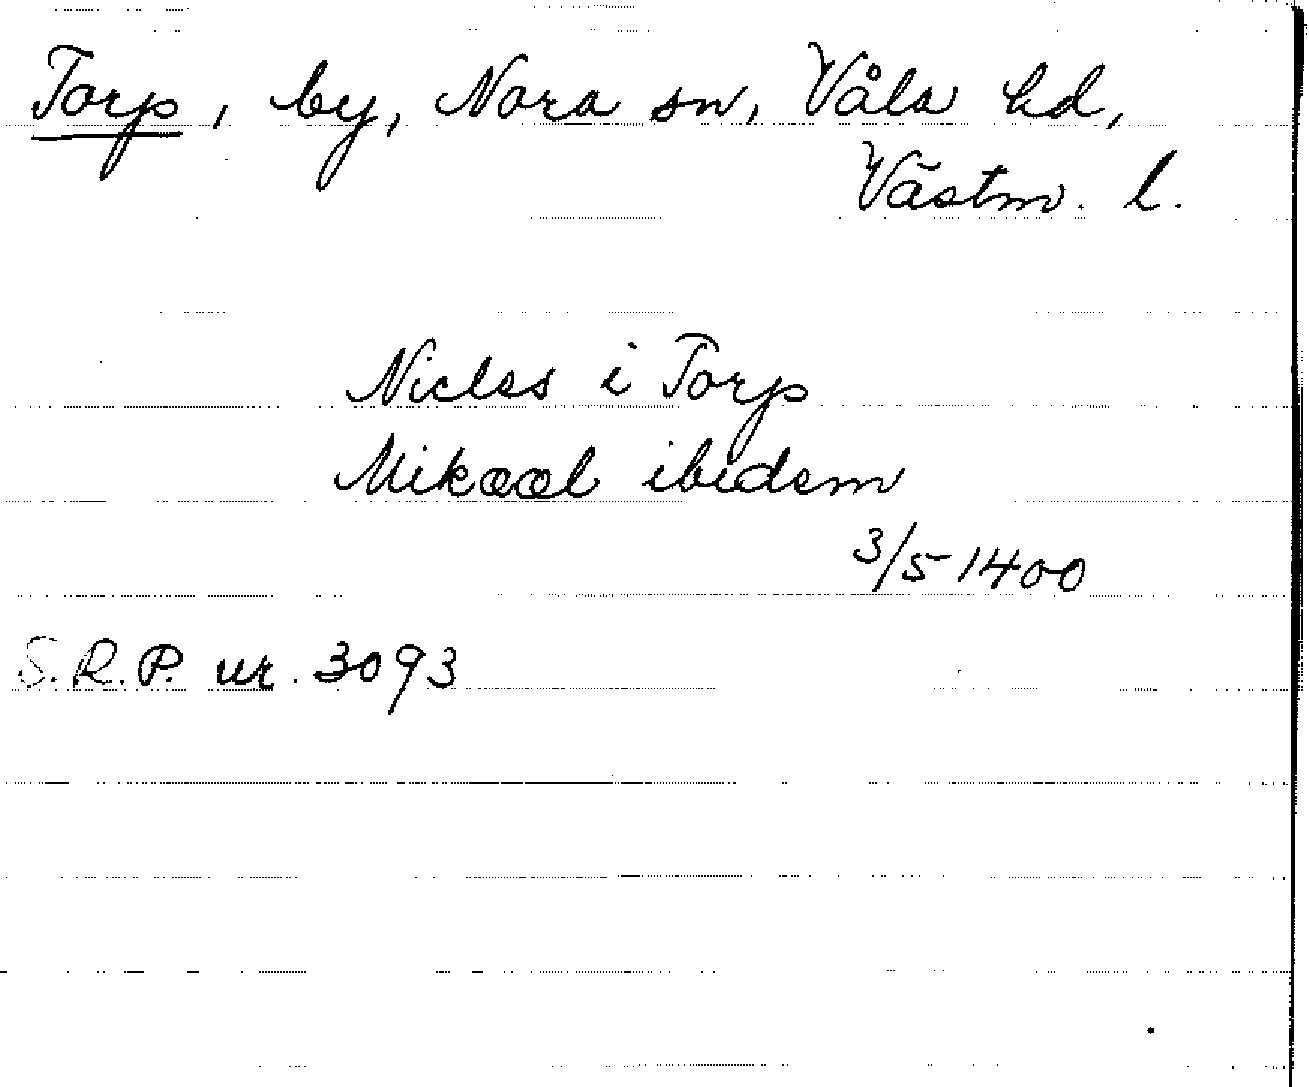 Torp, by, Nora sn, Våla hd,
Västm. l.
Nicles i Torp
Mikææl ibidem
3/5 1400
S.R.P. nr. 3093